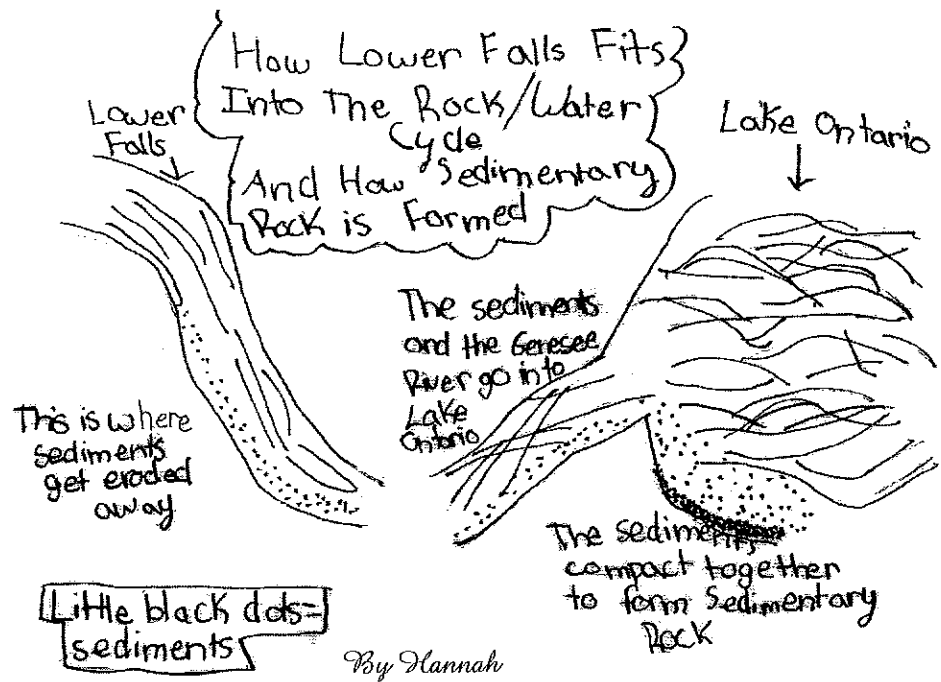 How Lower Falls Fits
Into The Rock/Water
Cycle
And How Sedimentary
Rock is Formed
Lower
Falls
Lake Ontario
The sediments
and the Genesee
River go into
Lake
Ontario
This is where
sediments
get eroded
away
The sediments
compact together
to form Sedimentary
Rock
Little black dots=
sediments
By Hannah